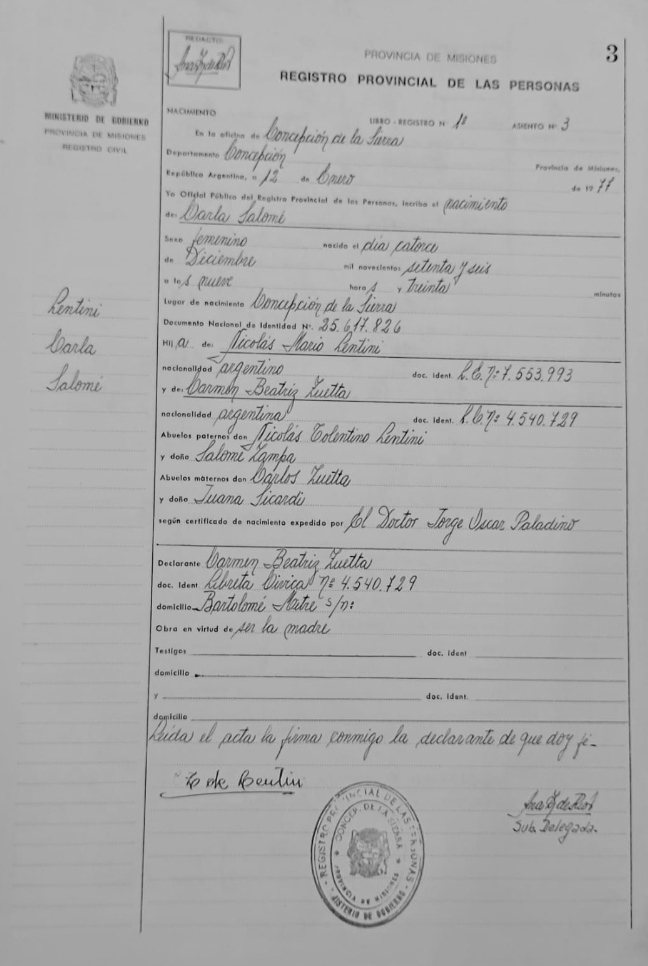 REDACTO:
PROVINCIA DE MISIONES
3
REGISTRO PROVINCIAL DE LAS PERSONAS
MINISTERIO DE GOBIERNO
PROVINCIA DE MISIONES
REGISTRO CIVIL
NACIMIENTO
LIBRO - REGISTRO N° 1º ASIENTO N° 3
En la oficina de Concepción de la Sierra
Departamento Concepción Provincia de Misiones,
República Argentina, a 12 de Enero de 1977
Yo Oficial Público del Registro Provincial de las Personas, inscribo el nacimiento
de: Carla Salomé
Sexo femenino nacido el día catorce
de Diciembre mil novecientos setenta y seis
a las nueve horas y treinta minutos
Lugar de nacimiento Concepción de la Sierra
Documento Nacional de Identidad N°. 25.617.826
Hija de: Nicolás Mario Lentini
nacionalidad argentino doc. ident. L.E. nº 7.553.993
y de: Carmen Beatriz Zuetta
nacionalidad argentina doc. ident. L.C. nº 4.540.729
Abuelos paternos don Nicolás Tolentino Lentini
y doña Salomé Zampa
Abuelos maternos don Carlos Zuetta
y doña Juana Sicardi
según certificado de nacimiento expedido por El Doctor Jorge Oscar Paladino
Declarante Carmen Beatriz Zuetta
doc. ident. Libreta Cívica nº 4.540.729
domicilio Bartolomé Mitre s/nº
Obra en virtud de ser la madre
Testigos doc. ident
domicilio
y doc. ident.
domicilio
Leída el acta la firma conmigo la declarante de que doy fe-
Lentini
Carla
Salomé
Z de Lentini
Sub Delegada.
REGISTRO PROVINCIAL DE LAS PERSONAS
CONCEP. DE LA SIERRA
PROVINCIA DE MISIONES
MINISTERIO DE GOBIERNO